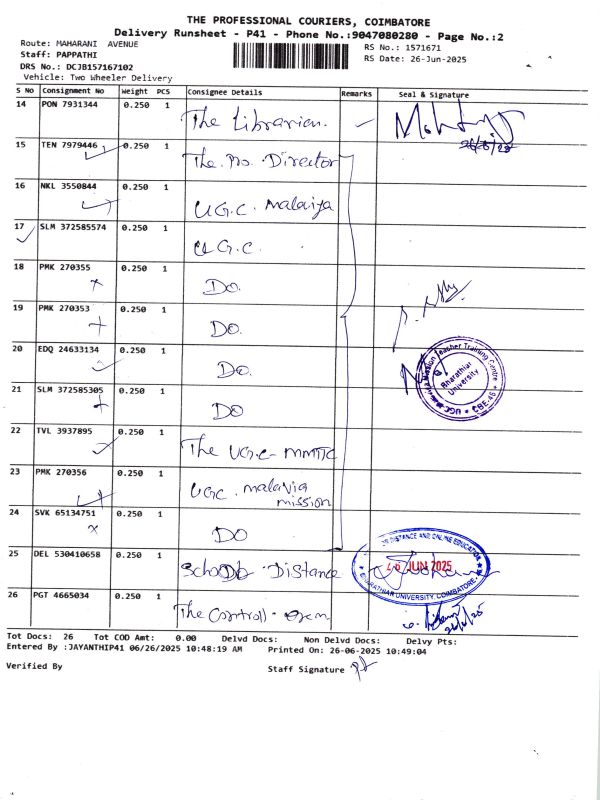 THE PROFESSIONAL COURIERS, COIMBATORE
Delivery Runsheet - P41 - Phone No.:9047080280 - Page No.:2
Route: MAHARANI AVENUE
RS No.: 1571671
Staff: PAPPATHI
RS Date: 26-Jun-2025
DRS No.: DCJB157167102
Vehicle: Two Wheeler Delivery
S No Consignment No Weight PCS Consignee Details Remarks Seal & Signature
14 PON 7931344 0.250 1 The Librarian.
26/6/25
15 TEN 7979446 0.250 1 The Pro. Director
16 NKL 3550844 0.250 1 U.G.C. Malaiya
17 SLM 372585574 0.250 1 U.G.C.
18 PMK 270355 0.250 1 DO.
19 PMK 270353 0.250 1 DO.
20 EDQ 24633134 0.250 1 DO.
UGC Mission Teacher Training Centre * CBE-46 *
Bharathiar
University
21 SLM 372585305 0.250 1 DO
22 TVL 3937895 0.250 1 The UGC- MMTTC
23 PMK 270356 0.250 1 UGC. malavia
mission
24 SVK 65134751 0.250 1 DO
25 DEL 530410658 0.250 1 School Distance
DISTANCE AND ONLINE EDUCATION
26 JUN 2025
BHARATHIAR UNIVERSITY, COIMBATORE
26 PGT 4665034 0.250 1 The Controll - Exem
Tot Docs: 26 Tot COD Amt: 0.00 Delvd Docs: Non Delvd Docs: Delvy Pts:
Entered By :JAYANTHIP41 06/26/2025 10:48:19 AM Printed On: 26-06-2025 10:49:04
Verified By
Staff Signature